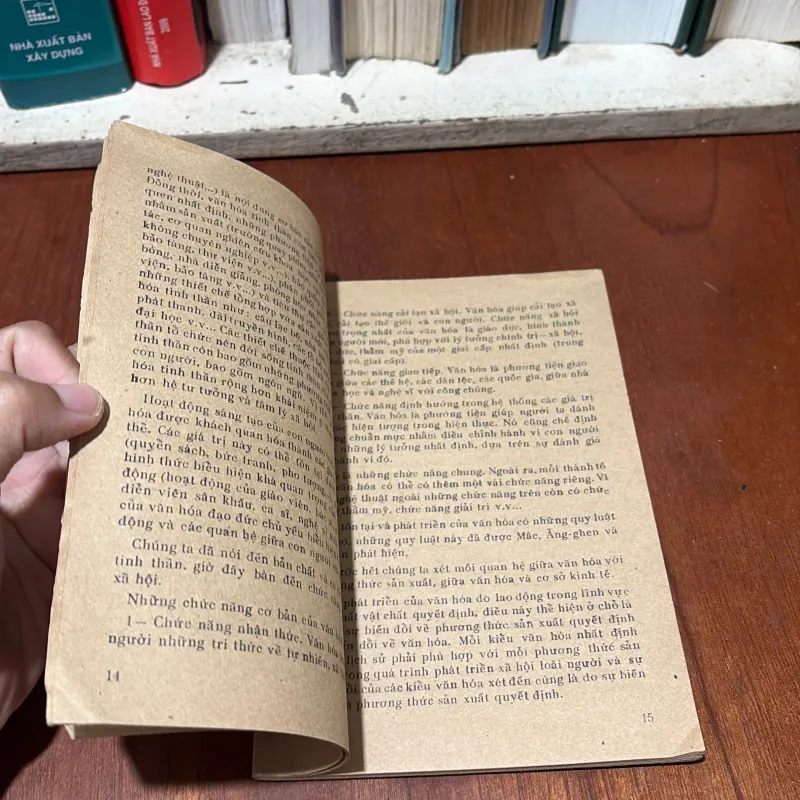 NHÀ XUẤT BẢN
XÂY DỰNG
NHÀ XUẤT BẢN LAO ĐỘ
2009
nghệ thuật...) là nội dung cơ bản
Đồng thời, văn hóa tinh thần
quen nhất định, những phương
nhằm sản xuất (trường quay
tác, cơ quan nghiên cứu khoa
không chuyên nghiệp v.v...)
bảo tàng, thư viện v.v...), phân
bóng, nhà diễn giảng, phòng
viện, bảo tàng v.v...) và tiêu thụ
những thiết chế tổng hợp văn
hóa tinh thần như: câu lạc bộ,
phát thanh, đài truyền hình, các
đại học v.v... Các thiết chế
thần tổ chức nên đời sống tinh
tinh thần còn bao gồm những
con người, bao gồm ngôn ngữ.
hóa tinh thần rộng hơn khái niệm
hơn hệ tư tưởng và tâm lý xã
Hoạt động sáng tạo của con người
hóa được khách quan hóa thành các
thể. Các giá trị này có thể tồn tại
(quyển sách, bức tranh, pho tượng
hình thức biểu hiện khá quan trọng
động (hoạt động của giáo viên,
diễn viên sân khấu, ca sĩ, nghệ
của văn hóa đạo đức chủ yếu biểu
động và các quan hệ giữa con người
Chúng ta đã nói đến bản chất và
tinh thần, giờ đây bàn đến chức
xã hội.
Những chức năng cơ bản của văn
1— Chức năng nhận thức. Văn hóa
người những tri thức về tự nhiên, xã
14
— Chức năng cải tạo xã hội. Văn hóa giúp cải tạo xã
cải tạo thế giới và con người. Chức năng xã hội
trọng nhất của văn hóa là giáo dục, hình thành
người mới, phù hợp với lý tưởng chính trị — xã hội,
đức, thẩm mỹ của một giai cấp nhất định (trong
có giai cấp).
Chức năng giao tiếp. Văn hóa là phương tiện giao
giữa các thế hệ, các dân tộc, các quốc gia, giữa nhà
và nghệ sĩ với công chúng.
— Chức năng định hướng trong hệ thống các giá trị
thần. Văn hóa là phương tiện giúp người ta đánh
các hiện tượng trong hiện thực. Nó cũng chế định
chuẩn mực nhằm điều chỉnh hành vi con người
những lý tưởng nhất định, dựa trên sự đánh giá
hành vi đó.
là những chức năng chung. Ngoài ra, mỗi thành tố
văn hóa có thể có thêm một vài chức năng riêng. Ví
nghệ thuật ngoài những chức năng trên còn có chức
thẩm mỹ, chức năng giải trí v.v...
tồn tại và phát triển của văn hóa có những quy luật
những quy luật này đã được Mác, Ăng-ghen và
phát hiện.
Trước hết chúng ta xét mối quan hệ giữa văn hóa với
thức sản xuất, giữa văn hóa và cơ sở kinh tế.
phát triển của văn hóa do lao động trong lĩnh vực
xuất vật chất quyết định, điều này thể hiện ở chỗ là
sự biến đổi về phương thức sản xuất quyết định
biến đổi về văn hóa. Mỗi kiểu văn hóa nhất định
lịch sử phải phù hợp với mỗi phương thức sản
trong quá trình phát triển xã hội loài người và sự
của các kiểu văn hóa xét đến cùng là do sự biến
phương thức sản xuất quyết định.
15